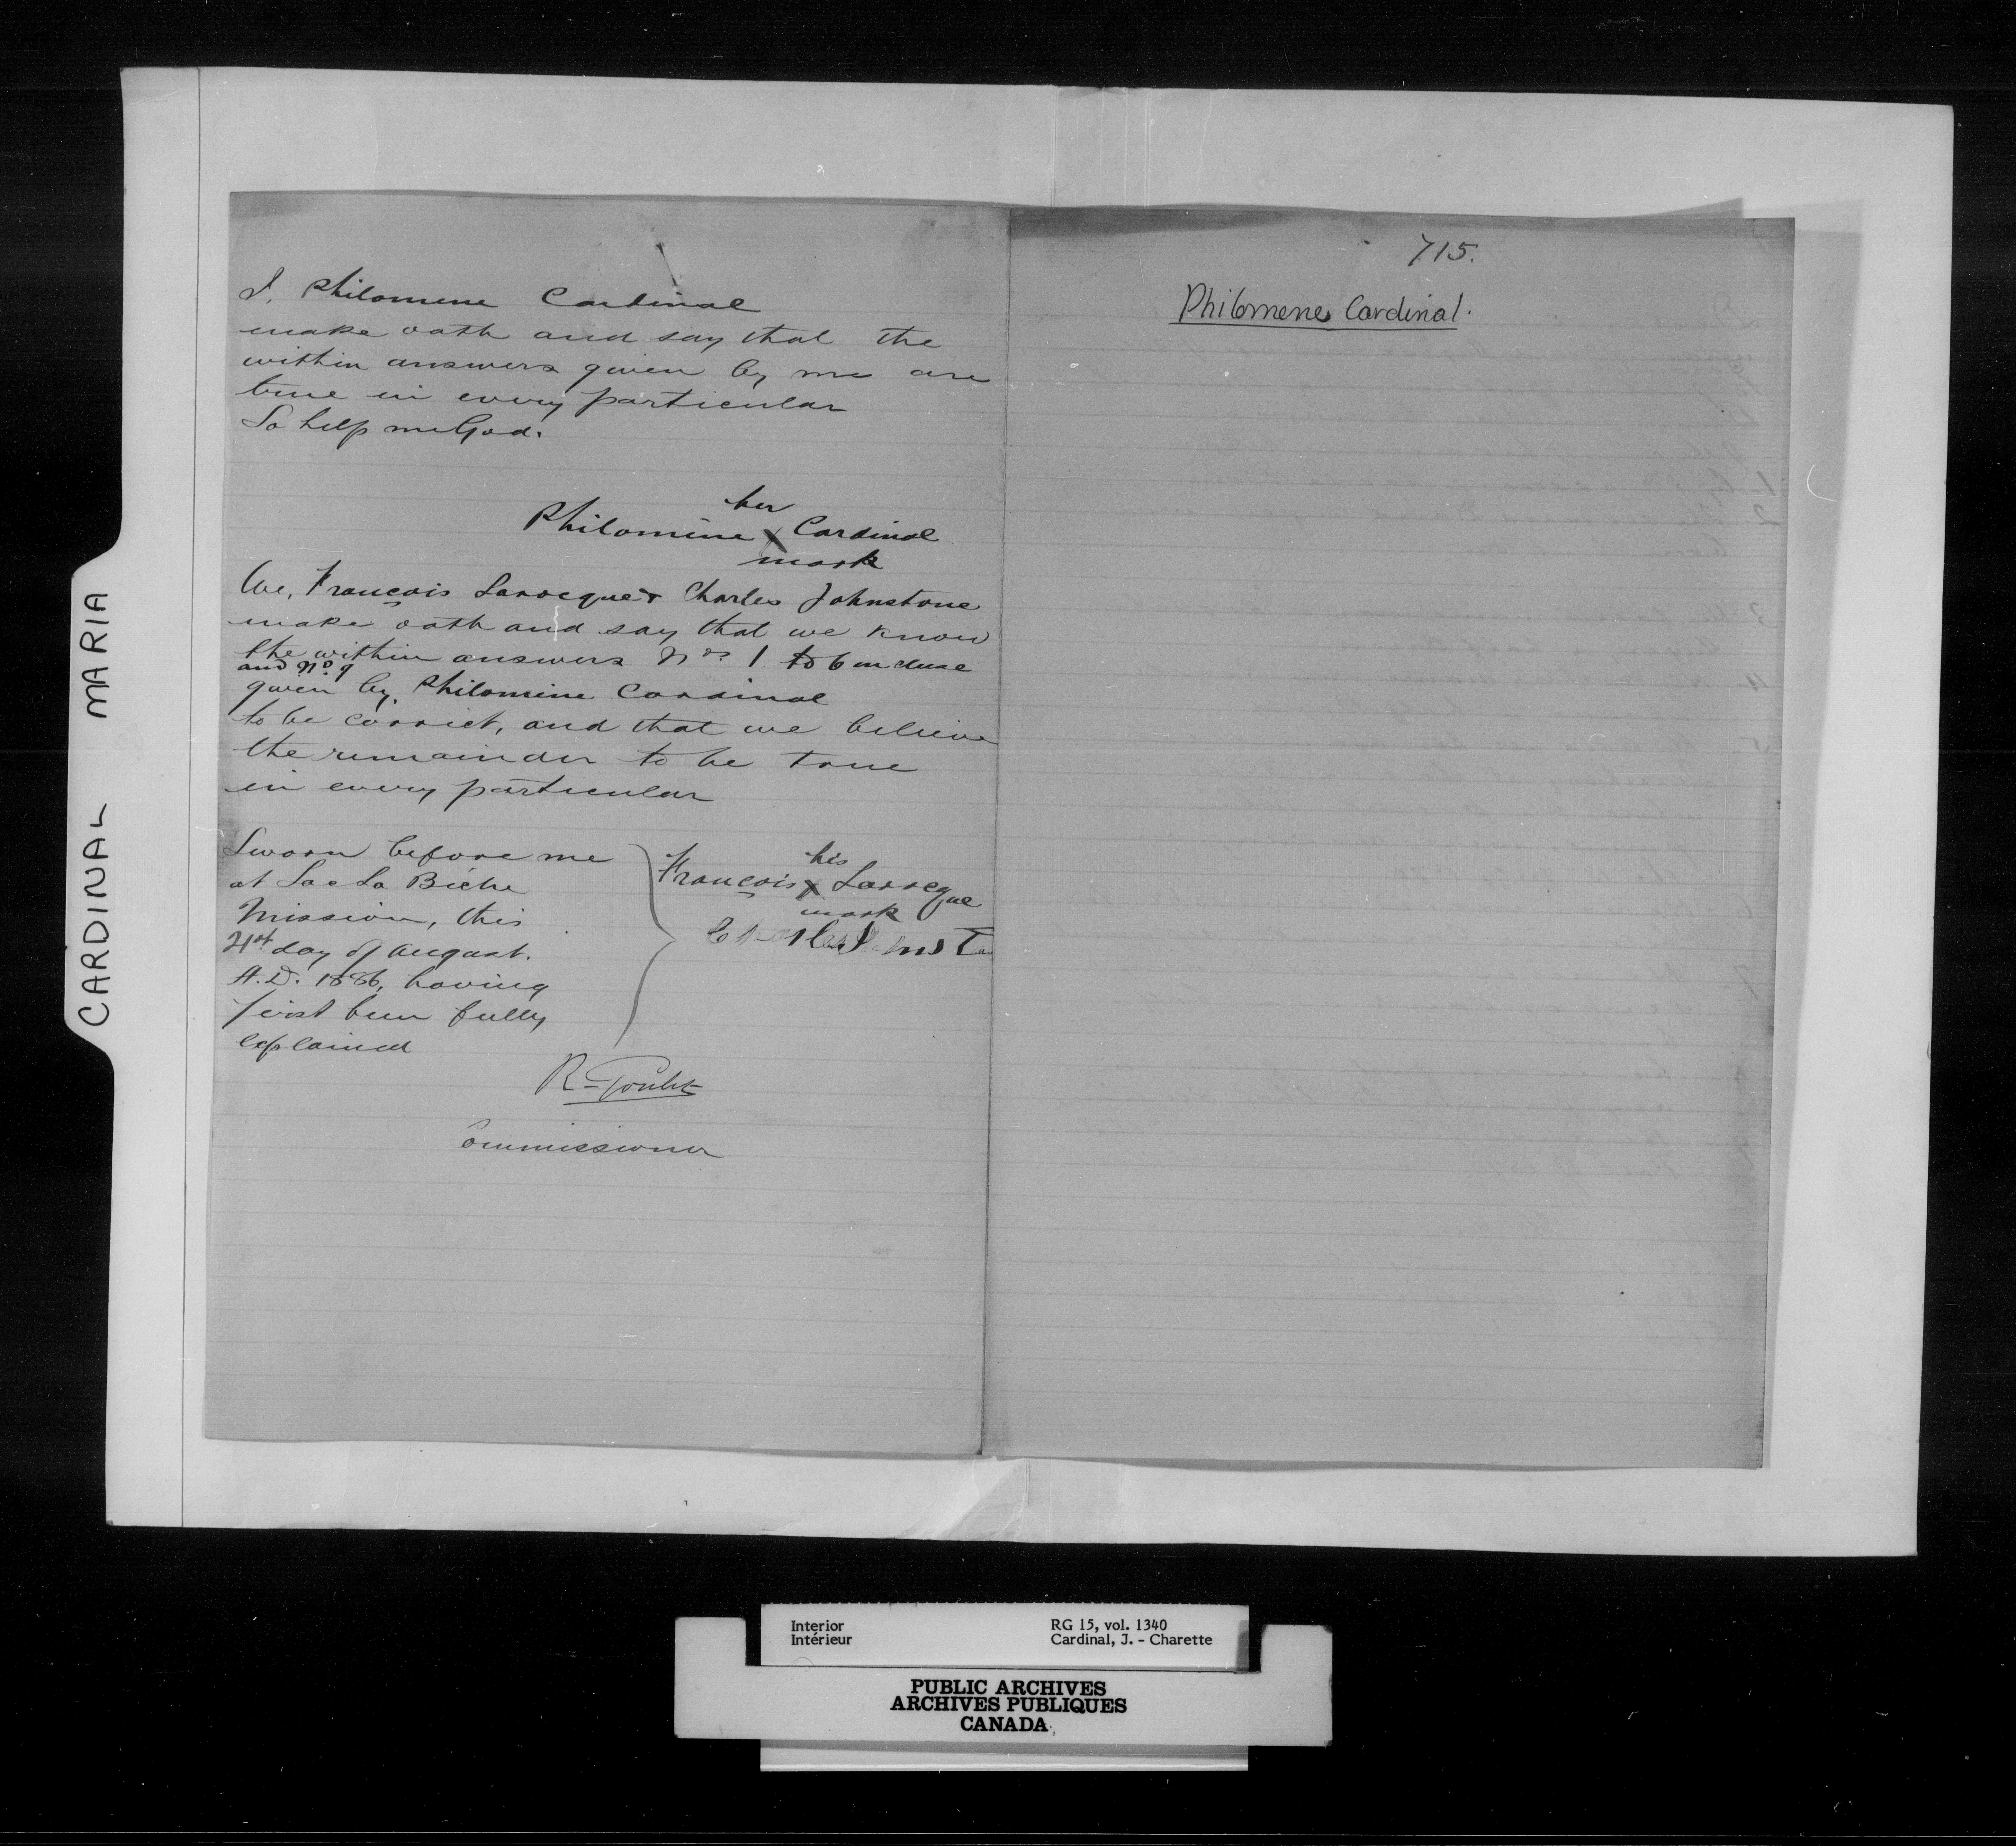 CARDINAL MARIA
I, Philomene Cardinal
make oath and say that the
within answers given by me are
true in every particular
So help me God.
her
Philomine X Cardinal
mark
We, François Larocque & Charles Johnstone
make oath and say that we know
the within answers Nos 1 to 6 incluse
and No 9
given by Philomine Cardinal
to be correct, and that we believe
the remainder to be true
in every particular
Sworn before me
at Lac La Biche
Mission, this
day of August.
A.D. 1886, having
first been fully
explained
his
François X Larocque
mark
R Goulet
Commissioner
715.
Philomene Cardinal.
Interior
Intérieur
RG 15, vol. 1340
Cardinal, J. - Charette
PUBLIC ARCHIVES
ARCHIVES PUBLIQUES
CANADA